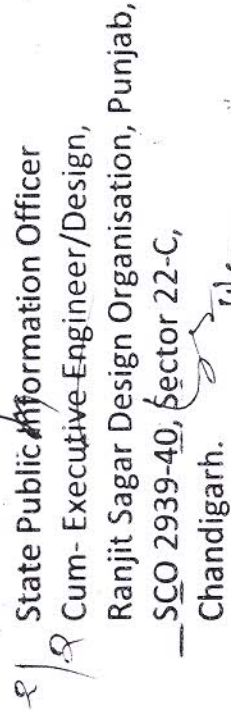 State Public Information Officer
Cum- Executive Engineer/Design,
Ranjit Sagar Design Organisation, Punjab,
SCO 2939-40, Sector 22-C,
Chandigarh.